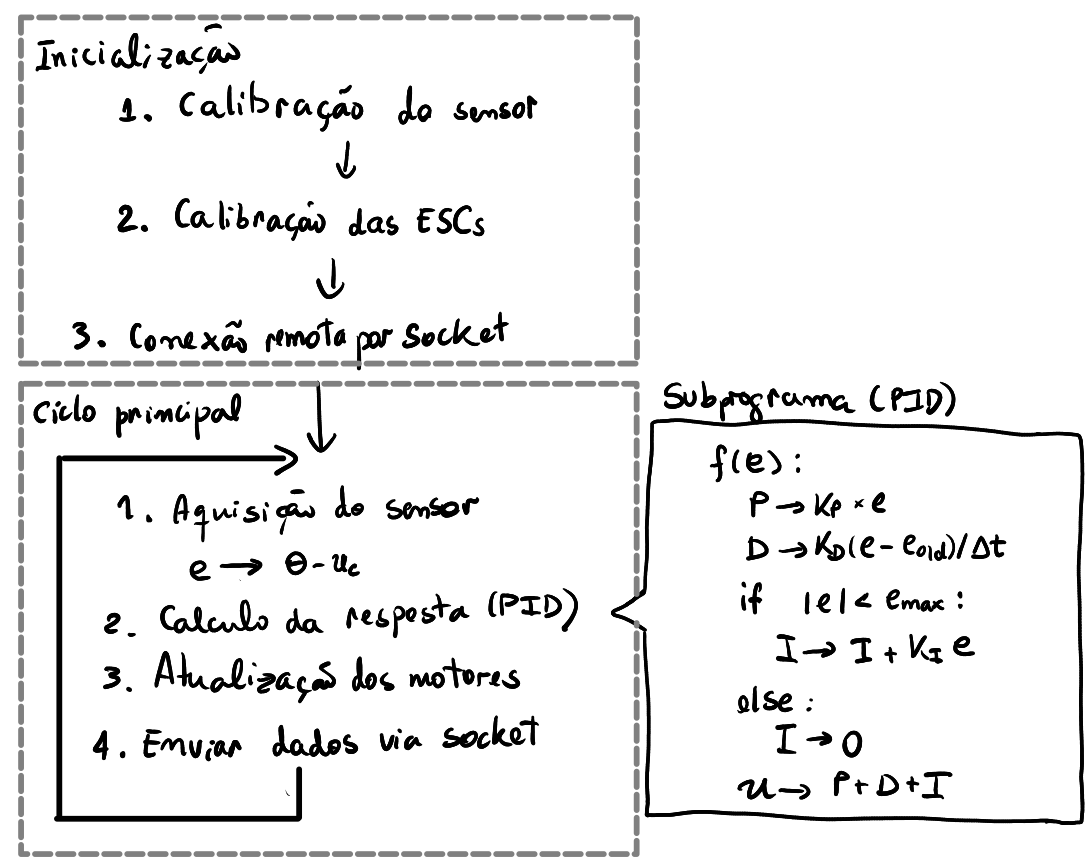 Inicialização
1. Calibração do sensor
↓
2. Calibração das ESCs
↓
3. Conexão remota por socket
Ciclo principal
1. Aquisição do sensor
e → θ - u_c
2. Calculo da resposta (PID)
3. Atualização dos motores
4. Enviar dados via socket
Subprograma (PID)
f(e):
P → K_P × e
D → K_D (e - e_old)/Δt
if |e| < e_max:
I → I + K_I e
else:
I → 0
u → P + D + I